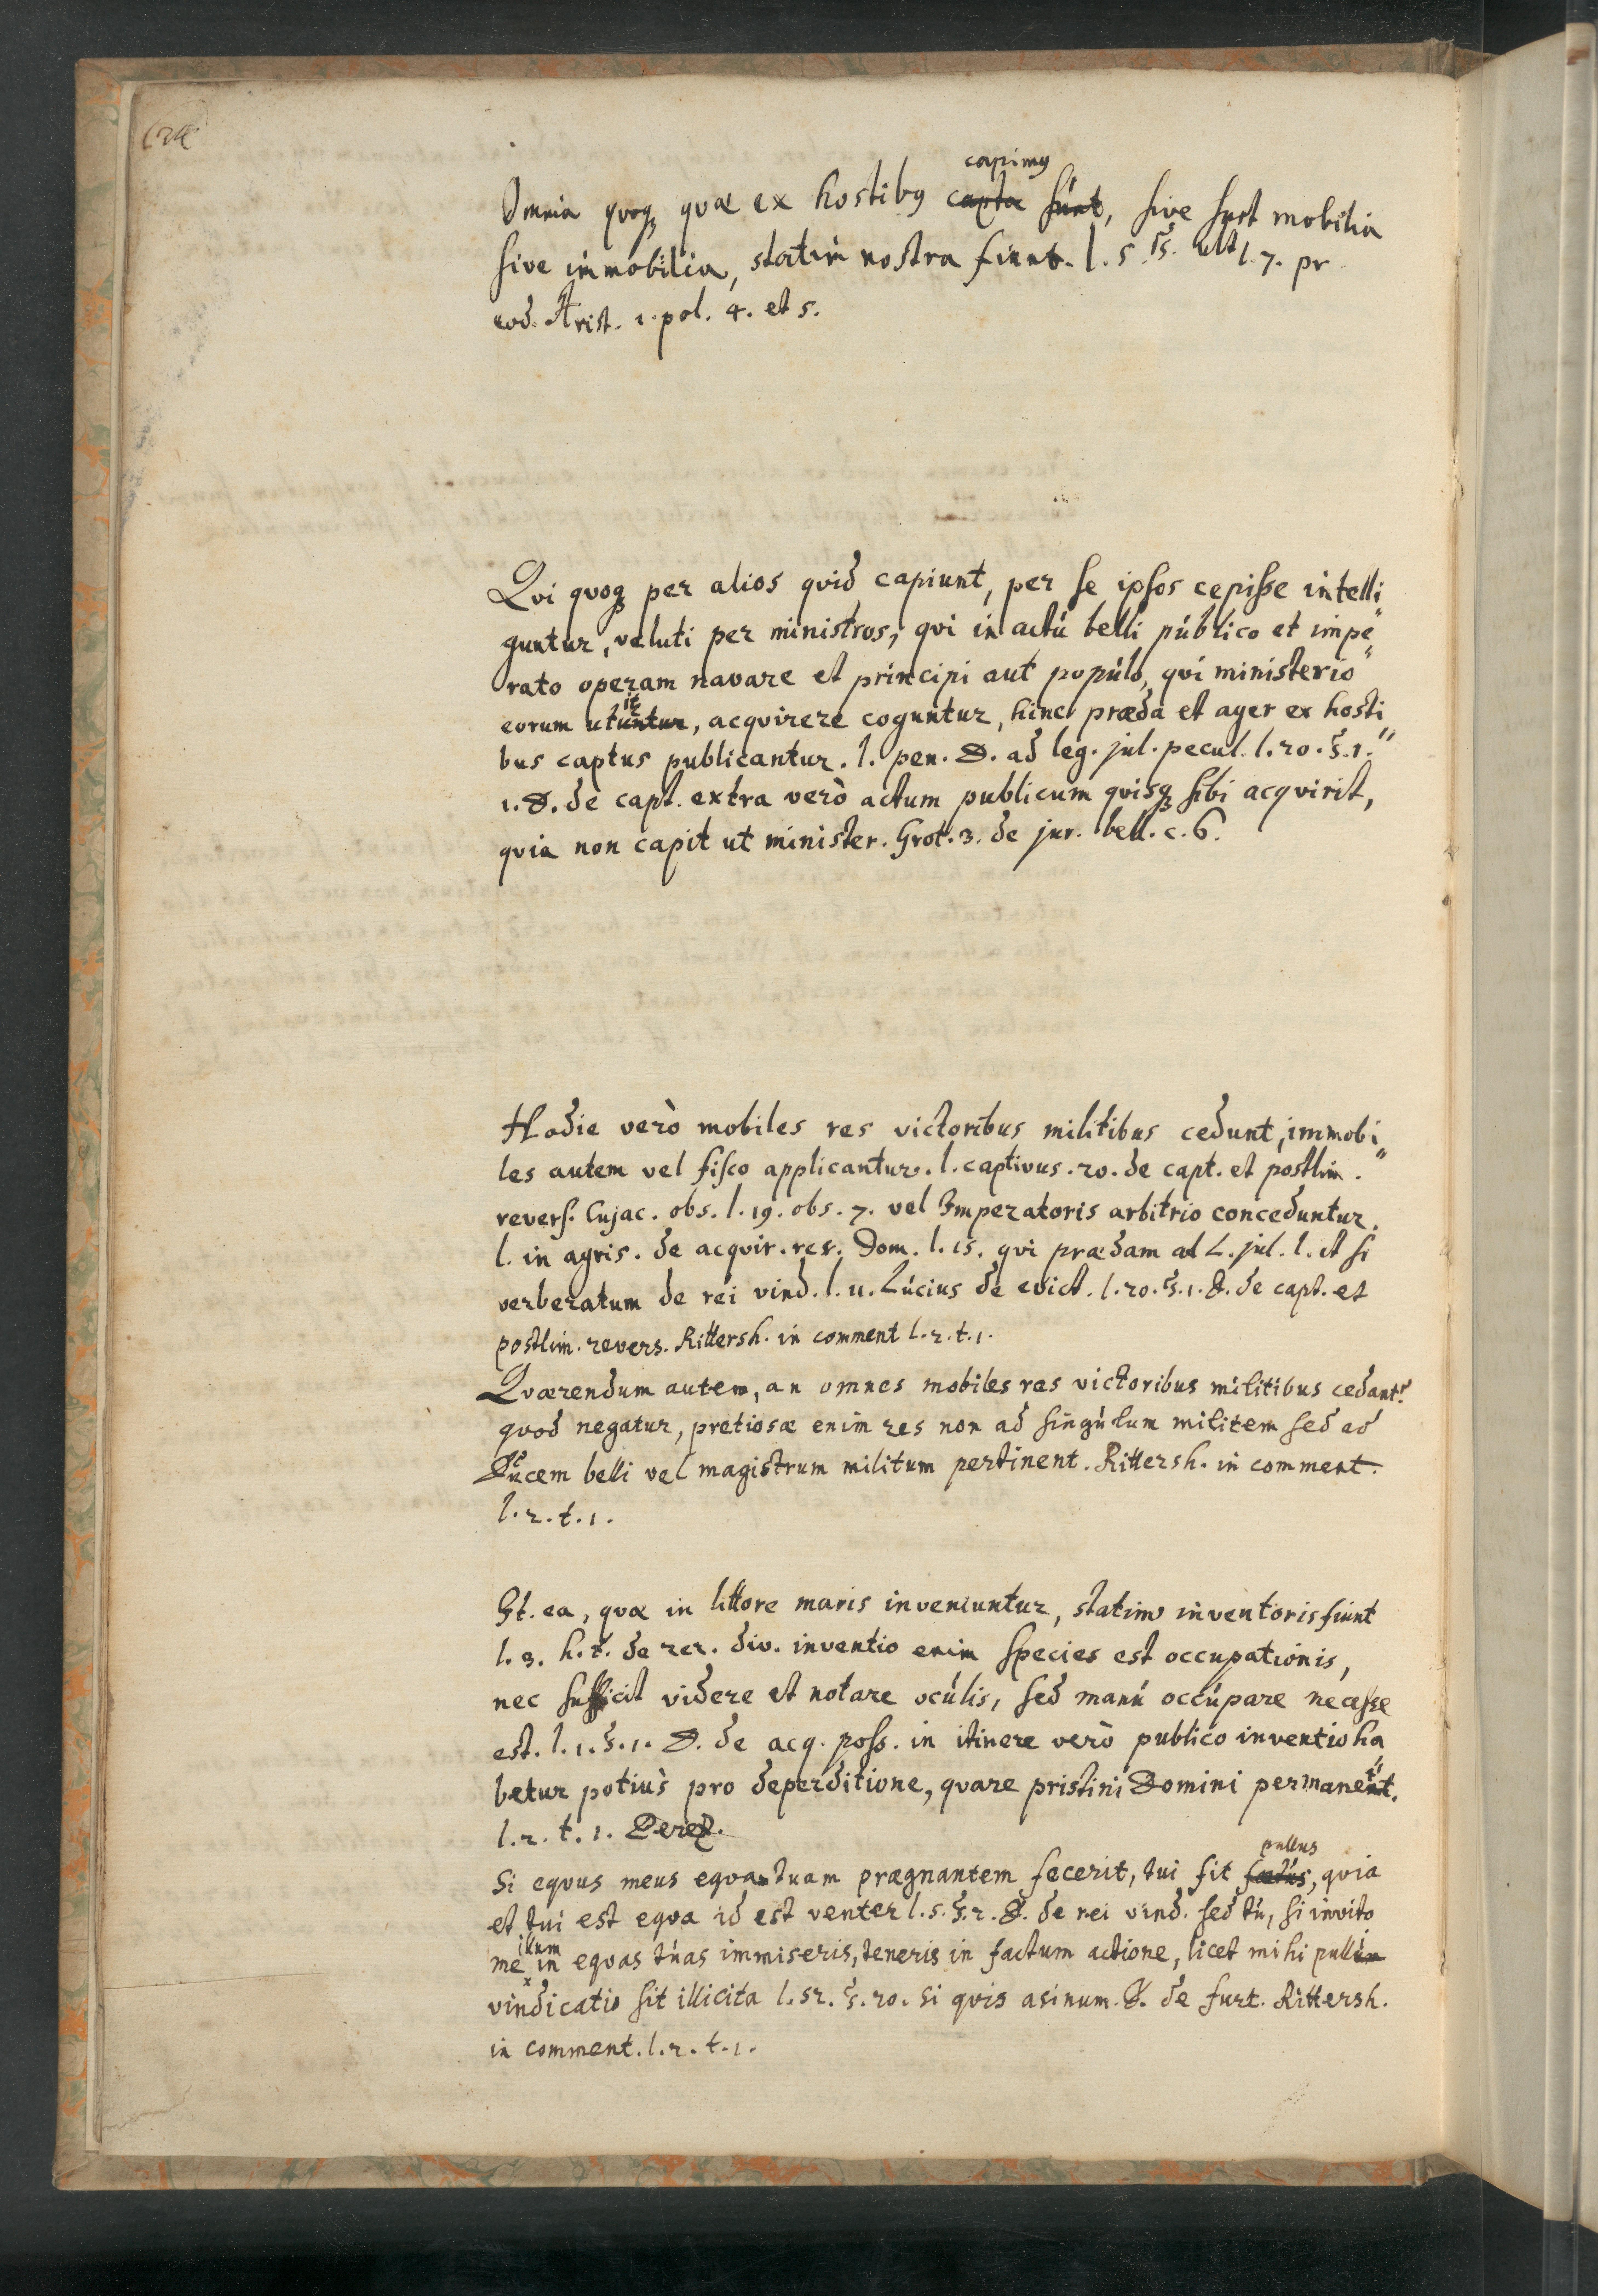 capimus
Omnia quoq; quæ ex hostibus capta sunt, sive sunt mobilia
sive immobilia, statim nostra fiunt. l. 5. §. ult l. 7. pr
eod. Arist. 1. pol. 4. et 5.
Qvi qvoq; per alios qvid capiunt, per se ipsos cepisse intelli
guntur, veluti per ministros, qvi in actú belli público et impe
rato operam navare et principi aut populo, qvi ministerio
it
eorum utuntur, acqvirere coguntur, hinc præda et ager ex hosti
bus captus publicantur. l. pen. D. ad leg. jul. pecul. l. 20. §. 1.
1. D. de capt. extra verò actum publicum qvisq; sibi acqvirit,
qvia non capit ut minister. Grot. 3. de jur. bell. c. 6.
Hodie verò mobiles res victoribus militibus cedunt, immobi
les autem vel fisco applicantur. l. captivus. 20. de capt. et postlim.
revers. Cujac. obs. l. 19. obs. 7. vel Imperatoris arbitrio conceduntur.
l. in agris. de acqvir. rer. Dom. l. 15. qvi prædam ad L. jul. l. et si
verberatum de rei vind. l. 11. Lúcius de evict. l. 20. §. 1. D. de capt. et
postlim. revers. Rittersh. in comment l. 2. t. 1.
Qværendum autem, an omnes mobiles res victoribus militibus cedant?
qvod negatur, pretiosæ enim res non ad singúlum militem sed ad
Ducem belli vel magistrum militum pertinent. Rittersh. in comment.
l. 2. t. 1.
It. ea, qvæ in littore maris inveniuntur, statim inventoris fiunt
l. 3. h. t. de rer. div. inventio enim species est occupationis,
nec sufficit videre et notare ocúlis, sed manú occúpare necesse
est. l. 1. §. 1. D. de acq. poss. in itinere verò publico inventio ha
betur potiùs pro deperditione, qvare pristini Domini permanent.
l. 2. t. 1. Perez.
pullus
Si eqvus meus eqvam tuam prægnantem fecerit, tui sit fœtús, qvia
et tui est eqva id est venter l. 5. §. 2. D. de rei vind. sed tú, si invito
illum
me in eqvas túas immiseris, teneris in factum actione, licet mihi pullún
vindicatio sit illicita l. 52. §. 20. si qvis asinum. D. de furt. Rittersh.
in comment. l. 2. t. 1.